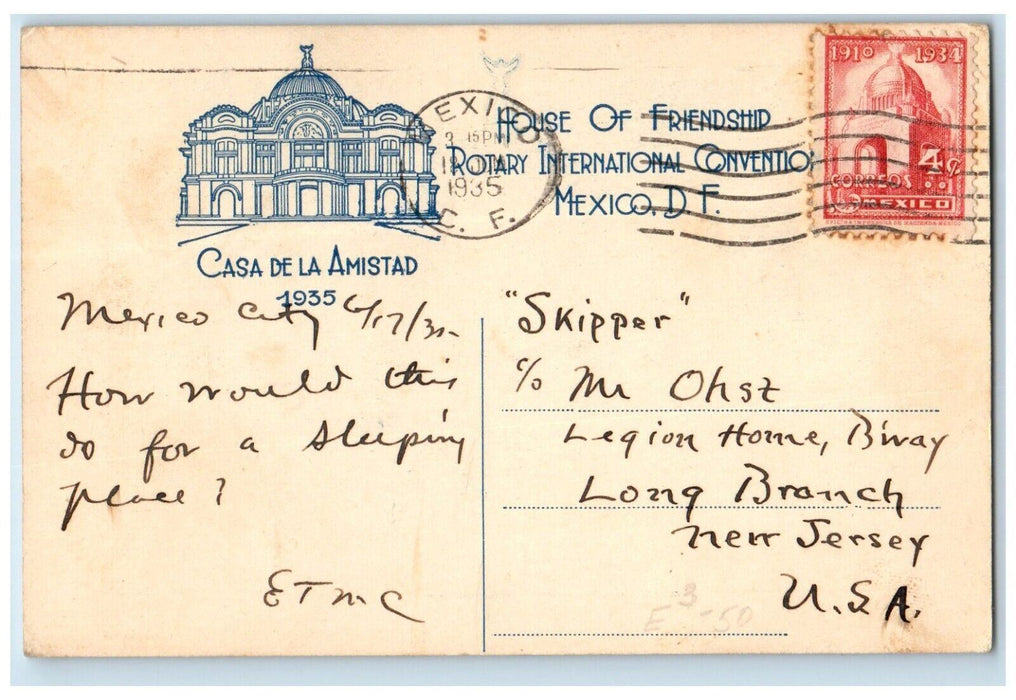 HOUSE OF FRIENDSHIP
ROTARY INTERNATIONAL CONVENTIO
MEXICO, D. F.
CASA DE LA AMISTAD
1935
MEXICO
15 PM
1935
F.
1910 1934
4 ¢
CORREOS
MEXICO
Mexico City 6/17/35
How would this
do for a sleeping
place?
ETMC
"Skipper"
c/o Mr Ohst
Legion Home, B'way
Long Branch
New Jersey
U.S.A.
E 3-50